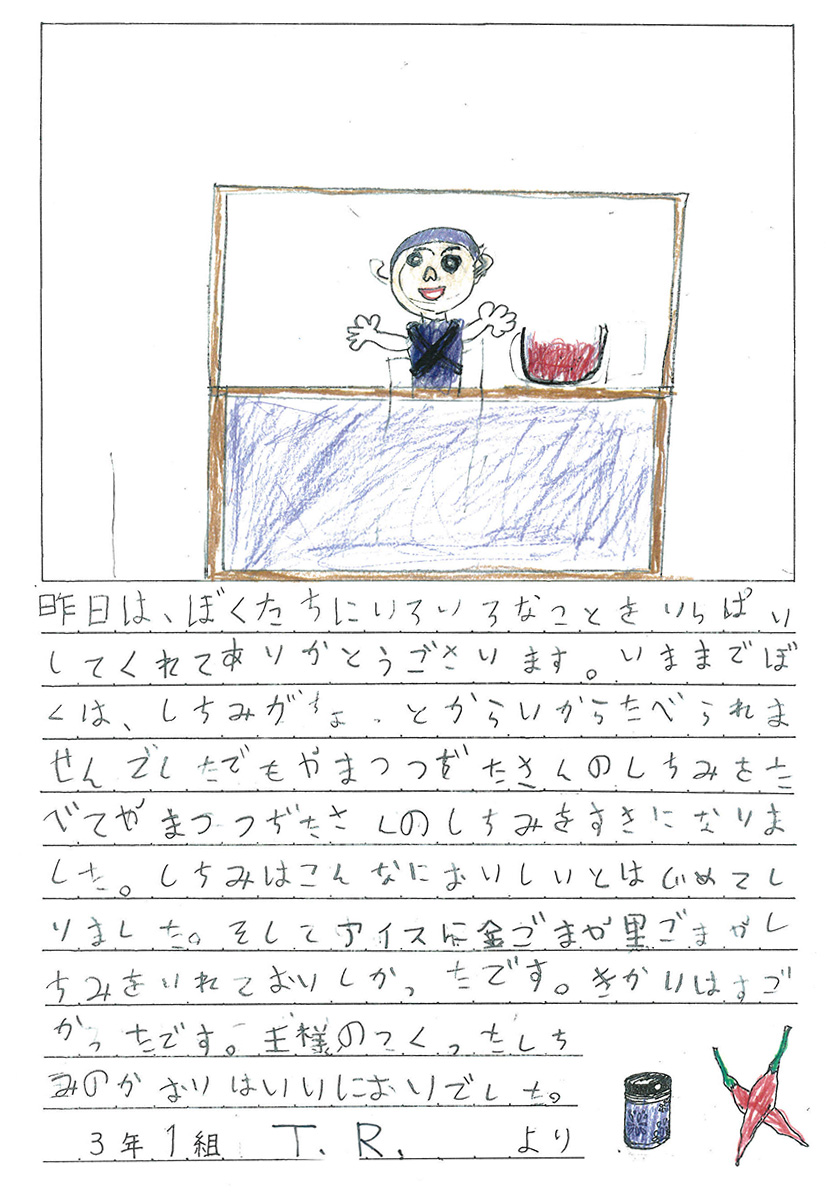 昨日は、ぼくたちにいろいろなことをいっぱい
してくれてありがとうございます。いままでぼ
くは、しちみがちょっとからいからたべられま
せんでしたでもやまつつぢたさんのしちみをた
べてやまつつぢたさんのしちみをすきになりま
した。しちみはこんなにおいしいとはじめてし
りました。そしてアイスに金ごまか黒ごまかし
ちみをいれておいしかったです。きかりはすご
かったです。王様のつくったしち
みのかおりはいいにおいでした。
3年1組 T.R. より